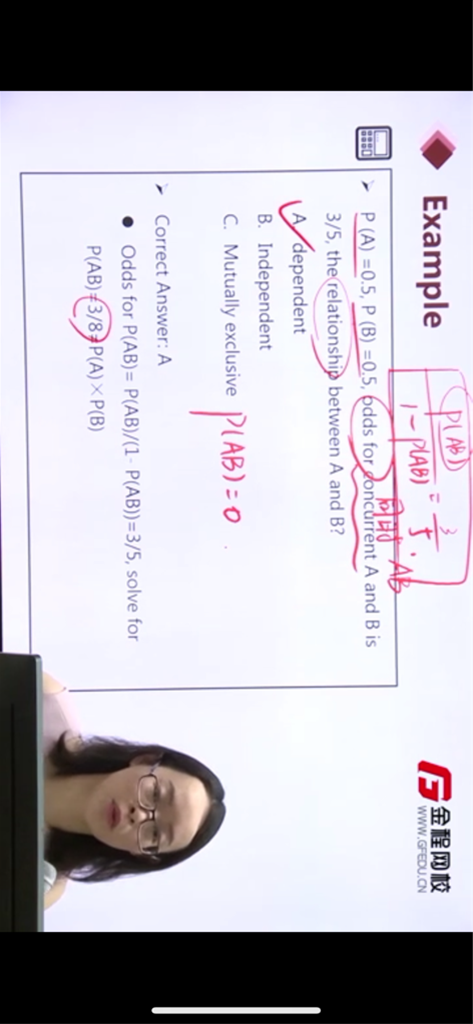 Example
金程网校
WWW.GFEDU.CN
P(AB)
1-P(AB) = 3/5
同时 · AB
➤ P (A) =0.5, P (B) =0.5, odds for concurrent A and B is
3/5, the relationship between A and B?
A. dependent
B. Independent
C. Mutually exclusive
P(AB)=0.
➤ Correct Answer: A
● Odds for P(AB)= P(AB)/(1- P(AB))=3/5, solve for
P(AB)=3/8≠P(A) × P(B)